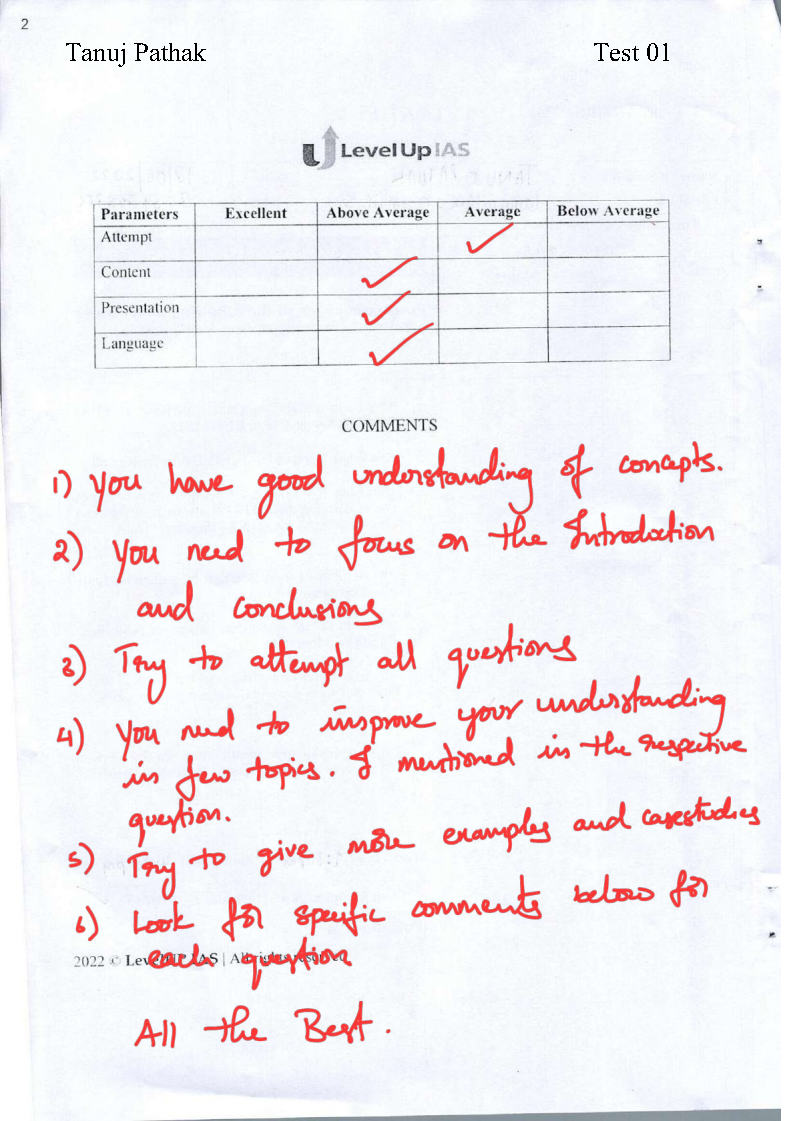 2
Tanuj Pathak Test 01
Level Up IAS
Parameters Excellent Above Average Average Below Average
Attempt
Content
Presentation
Language
COMMENTS
1) You have good understanding of concepts.
2) You need to focus on the Introduction
and conclusions
3) Try to attempt all questions
4) You need to improve your understanding
in few topics. I mentioned in the respective
question.
5) Try to give more examples and casestudies
6) Look for specific comments below for
each question
2022 © Level UP IAS | All rights reserved
All the Best.